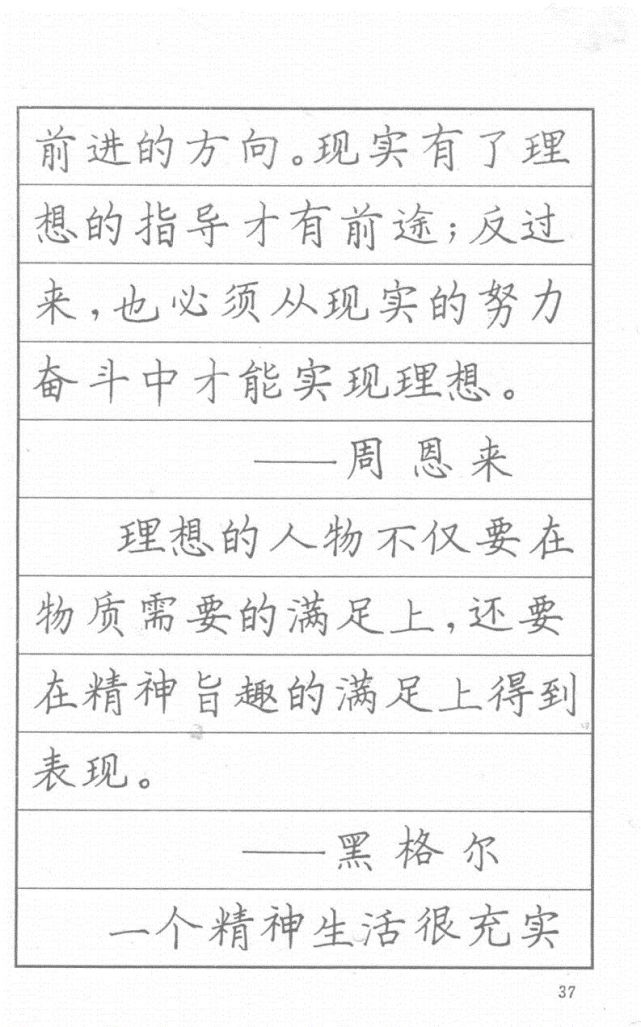 前进的方向。现实有了理
想的指导才有前途；反过
来，也必须从现实的努力
奋斗中才能实现理想。
——周恩来
理想的人物不仅要在
物质需要的满足上，还要
在精神旨趣的满足上得到
表现。
——黑格尔
一个精神生活很充实
37